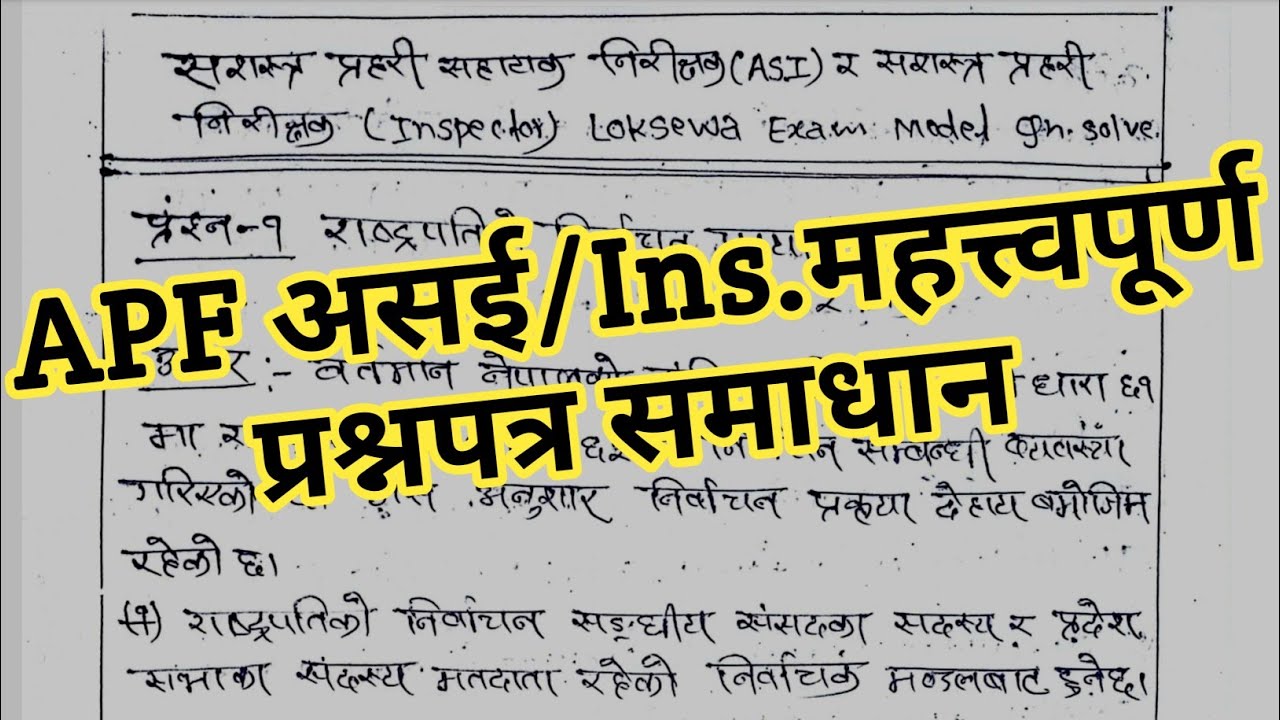 सशस्त्र प्रहरी सहायक निरीक्षक (ASI) र सशस्त्र प्रहरी
निरीक्षक (Inspector) Loksewa Exam Model qn. solve.
प्रश्न-१ राष्ट्रपतिको निर्वाचन
APF असई/Ins.महत्त्वपूर्ण
प्रश्नपत्र समाधान
उत्तर :- वर्तमान नेपालको धारा ६१
मा
गरिएको अनुशार निर्वाचन प्रकृया देहाय बमोजिम
सम्बन्धी व्यवस्था
रहेको छ।
(१) राष्ट्रपतिको निर्वाचन सङ्घीय संसदका सदस्य र प्रदेश
सभाका सदस्य मतदाता रहेको निर्वाचक मण्डलबाट हुनेछ।